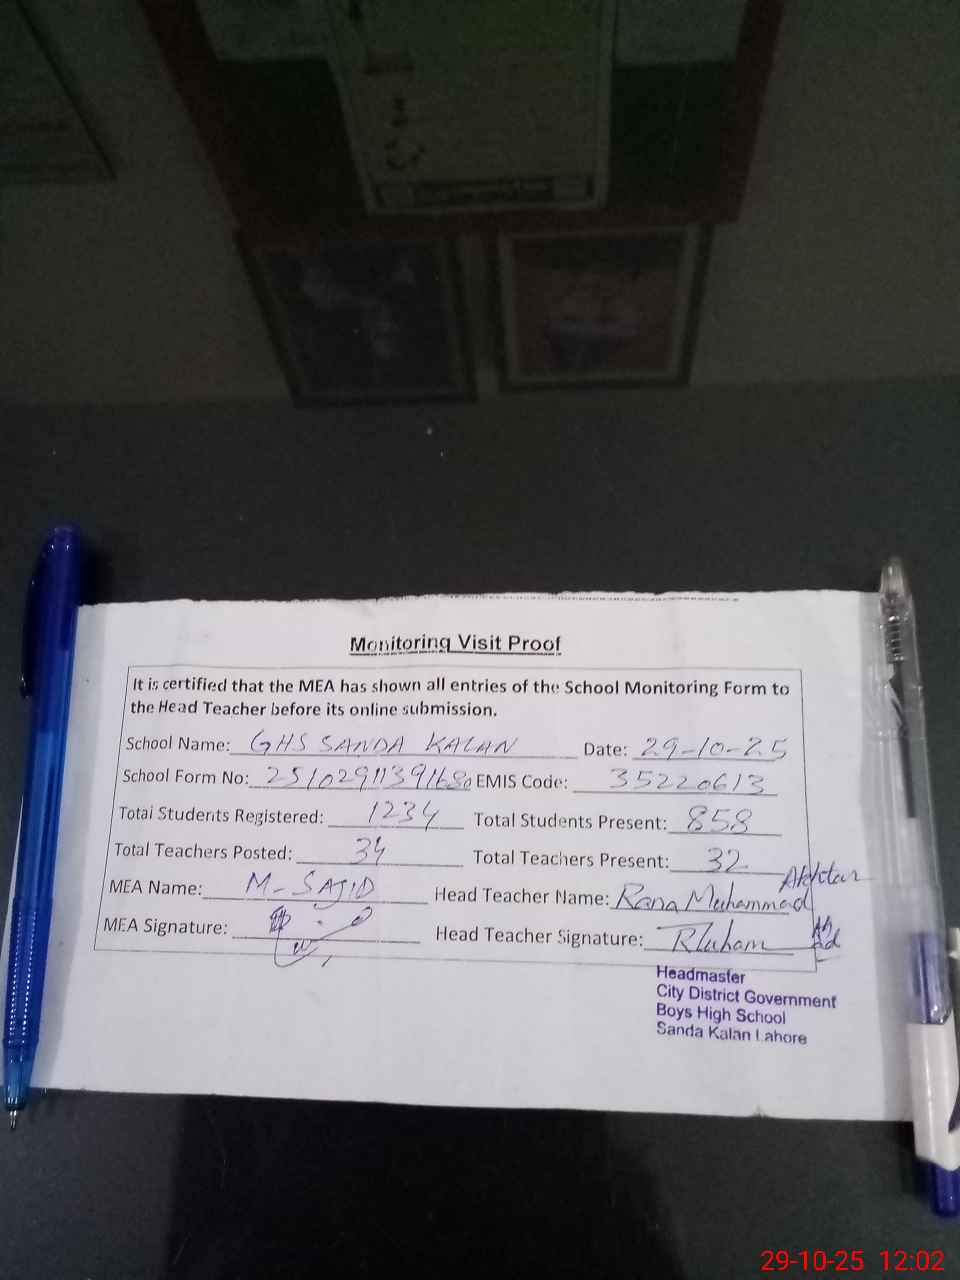 Monitoring Visit Proof
It is certified that the MEA has shown all entries of the School Monitoring Form to
the Head Teacher before its online submission.
School Name: GHS SANDA KALAN Date: 29-10-25
School Form No: 25102911391680 EMIS Code: 35220613
Total Students Registered: 1234 Total Students Present: 858
Total Teachers Posted: 34 Total Teachers Present: 32
MEA Name: M-SAJID Head Teacher Name: Rana Muhammad Akhtar
MEA Signature: Head Teacher Signature:
Headmaster
City District Government
Boys High School
Sanda Kalan Lahore
29-10-25 12:02